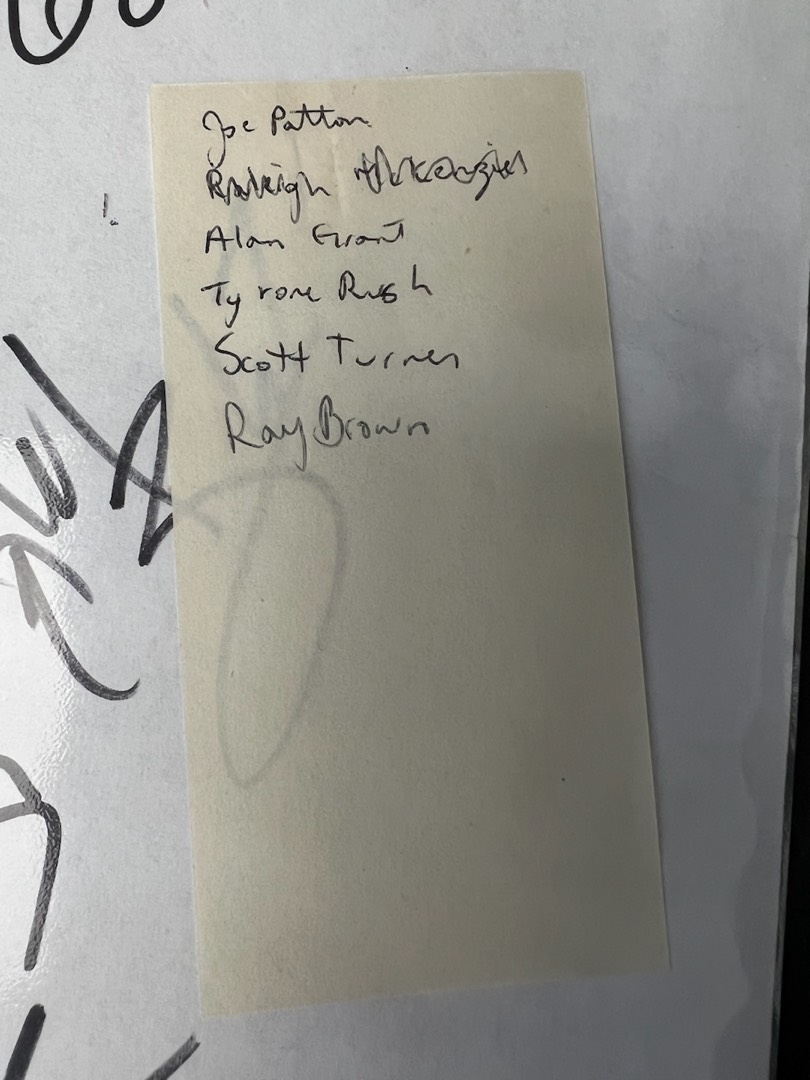 Joe Patton
Raleigh McKenzie
Alan Grant
Tyrone Rush
Scott Turner
Ray Brown